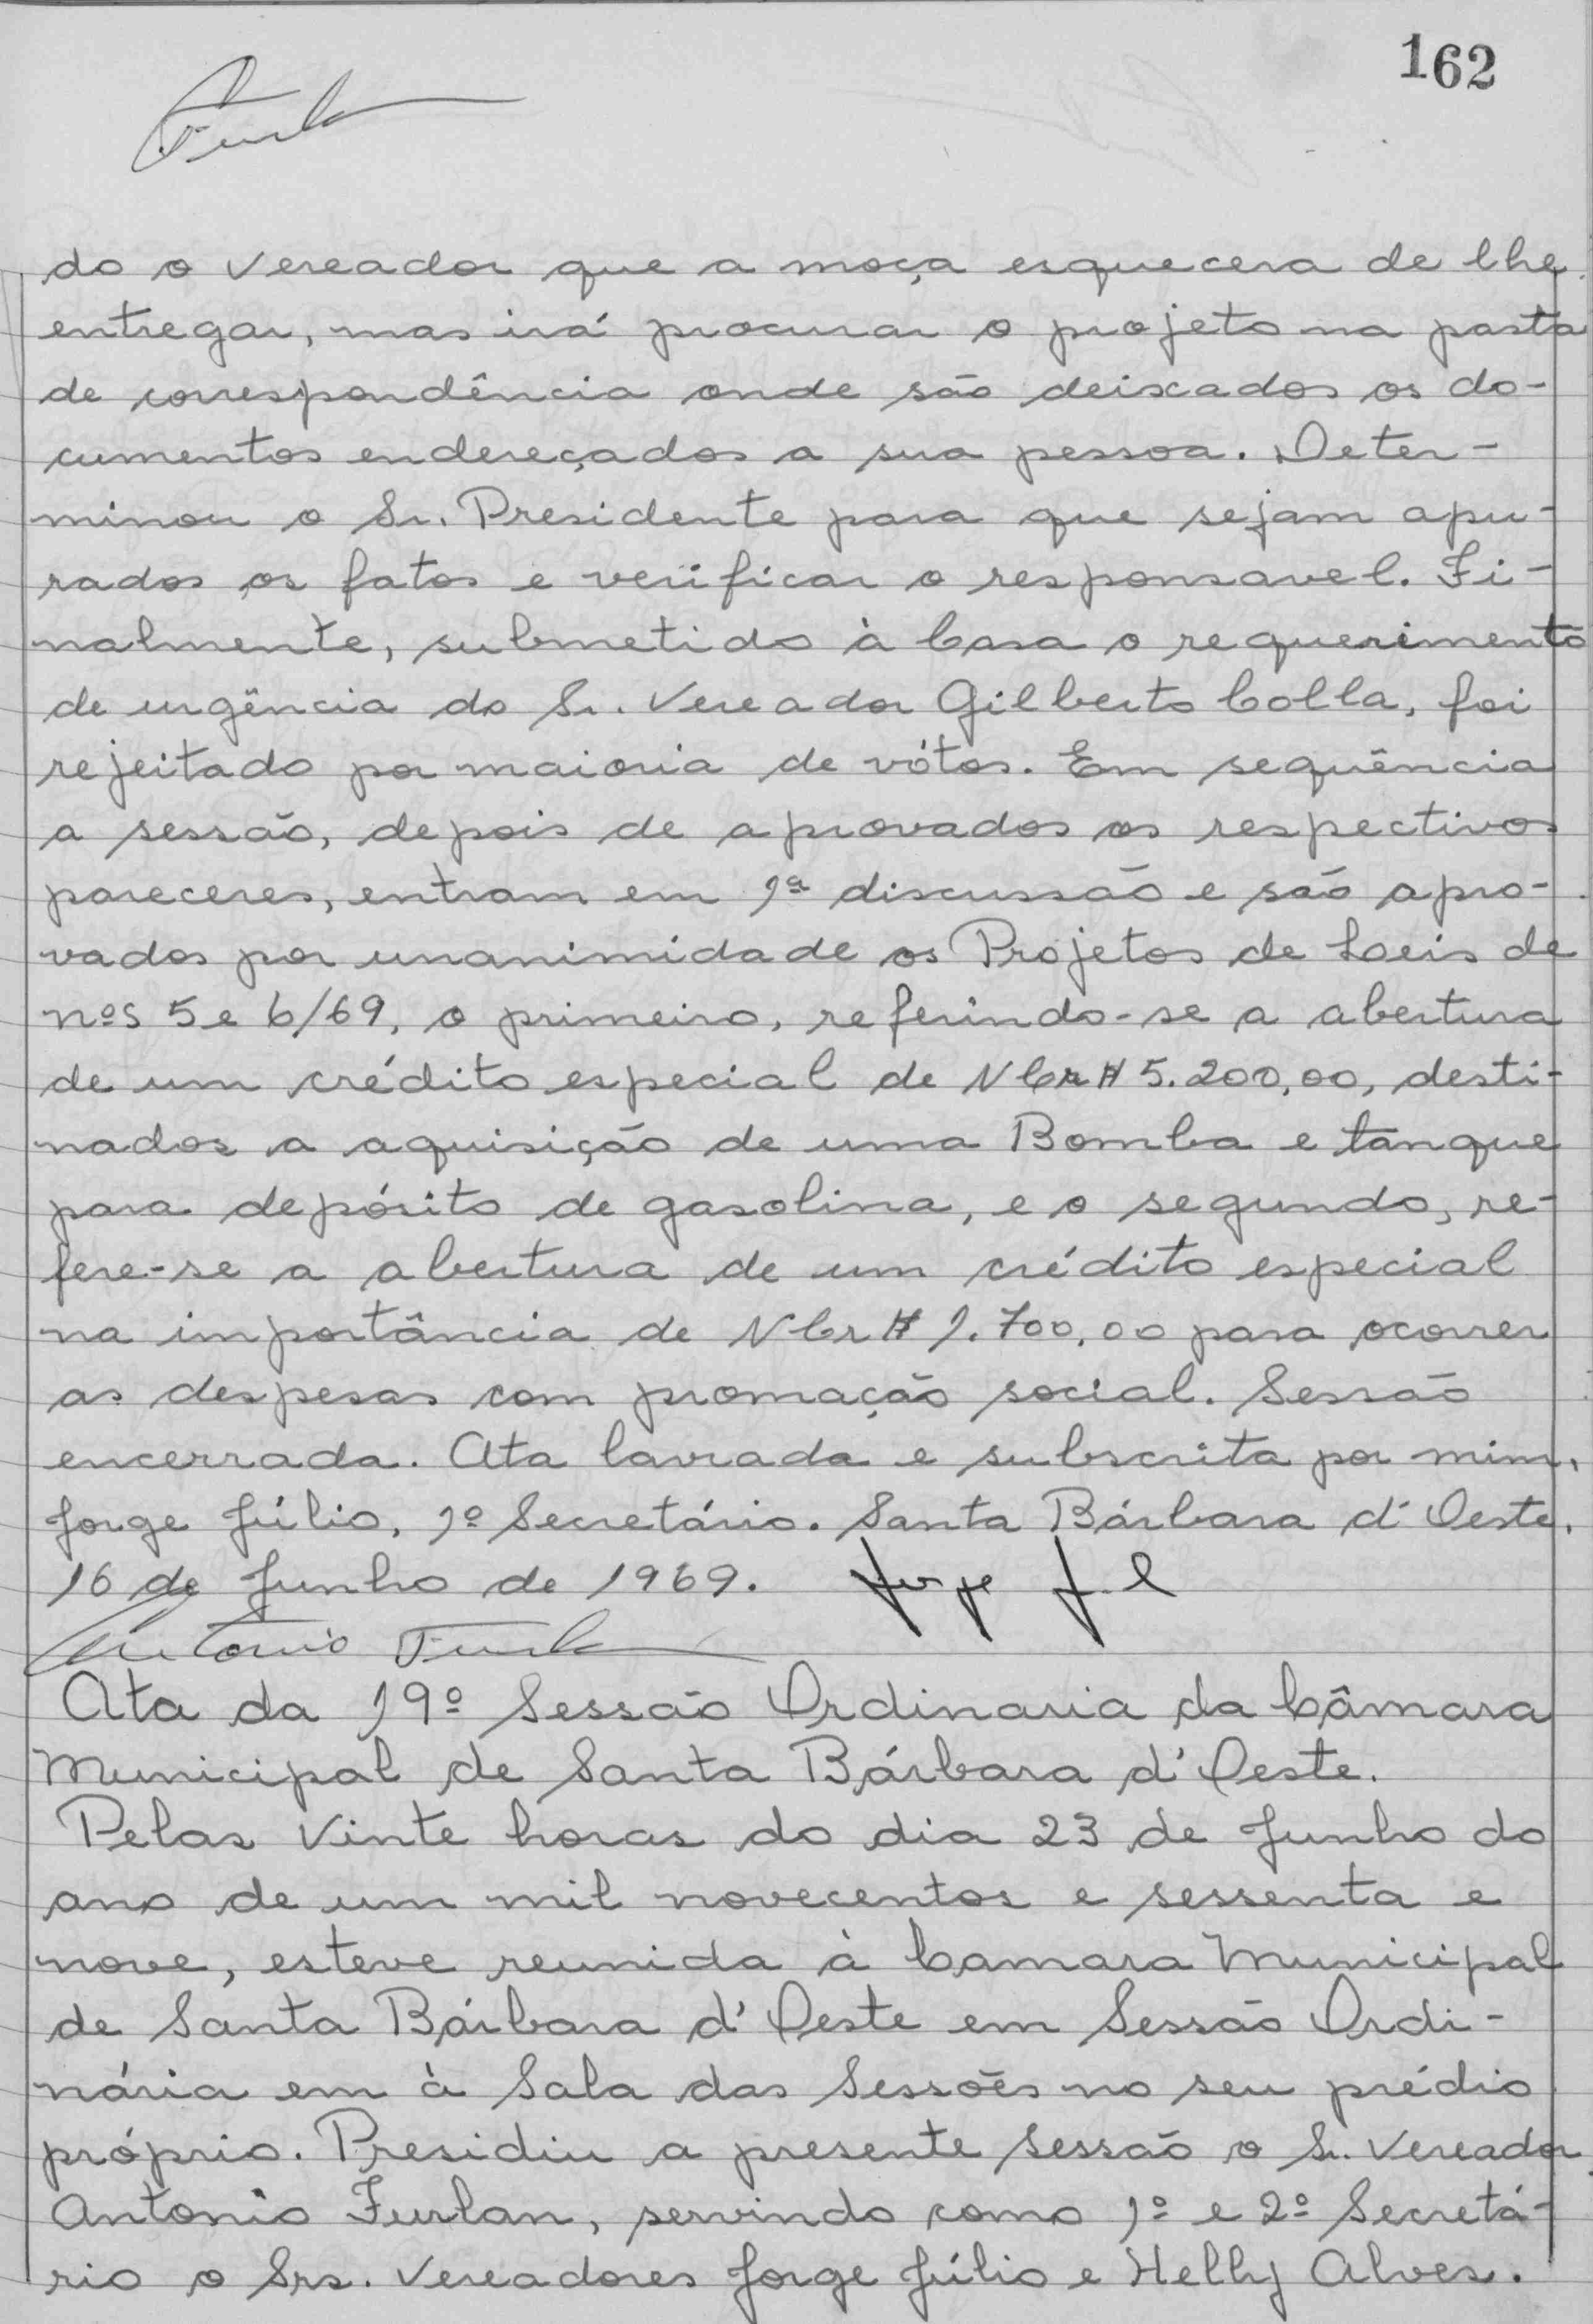 162
Furlan
do o vereador que a moça esquecera de lhe
entregar, mas irá procurar o projeto na pasta
de correspondência onde são deixados os do-
cumentos endereçados a sua pessoa. Deter-
minou o Sr. Presidente para que sejam apu-
rados os fatos e verificar o responsavel. Fi-
nalmente, submetido à Casa o requerimento
de urgência do Sr. Vereador Gilberto Colla, foi
rejeitado por maioria de vótos. Em sequência
a sessão, depois de aprovados os respectivos
pareceres, entram em 1ª discussão e são apro-
vados por unanimidade os Projetos de Leis de
nºs 5 e 6/69, o primeiro, referindo-se a abertura
de um crédito especial de NCr$ 5.200,00, desti-
nados a aquisição de uma Bomba e tanque
para depósito de gasolina, e o segundo, re-
fere-se a abertura de um crédito especial
na importância de NCr$ 1.700,00 para ocorrer
as despesas com promação social. Sessão
encerrada. Ata lavrada e subscrita por mim,
Jorge Júlio, 1º Secretário. Santa Bárbara d'Oeste,
16 de Junho de 1969. Jorge Jul
Antonio Furlan
Ata da 19º Sessão Ordinaria da Câmara
Municipal de Santa Bárbara d'Oeste.
Pelas vinte horas do dia 23 de Junho do
ano de um mil novecentos e sessenta e
nove, esteve reunida à Camara Municipal
de Santa Bárbara d'Oeste em Sessão Ordi-
nária em à Sala das Sessões no seu prédio
próprio. Presidiu a presente sessão o Sr. Vereador
Antonio Furlan, servindo como 1º e 2º Secretá-
rio o Srs. Vereadores Jorge Júlio e Helly Alves.